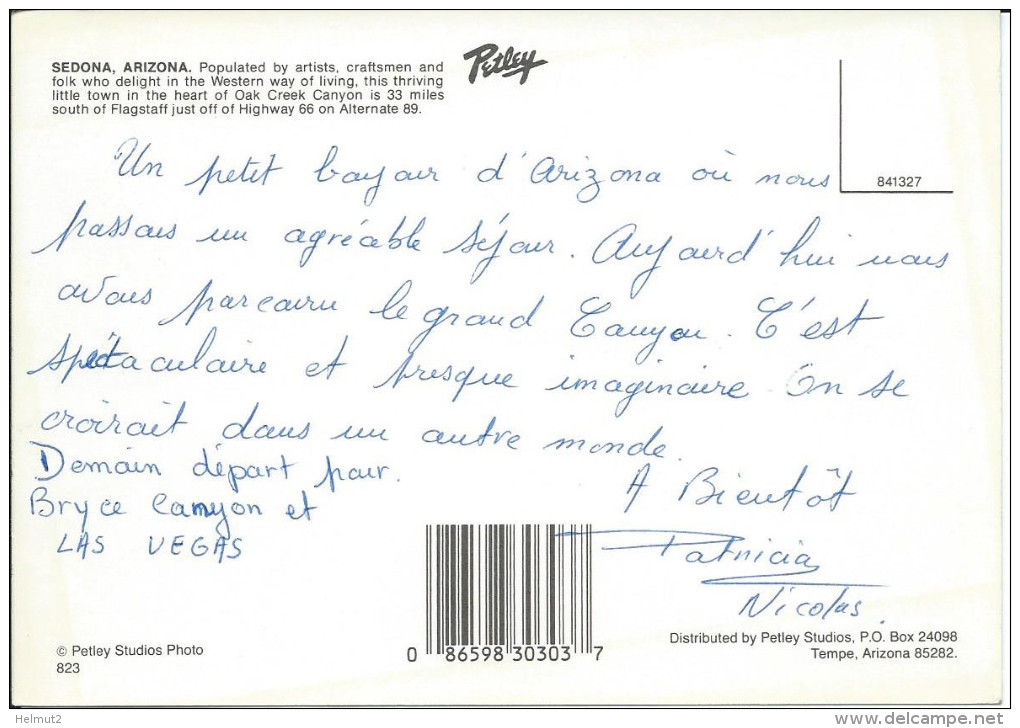 SEDONA, ARIZONA. Populated by artists, craftsmen and
folk who delight in the Western way of living, this thriving
little town in the heart of Oak Creek Canyon is 33 miles
south of Flagstaff just off of Highway 66 on Alternate 89.
Petley
841327
Un petit bonjour d'Arizona où nous
passons un agréable séjour. Aujourd'hui nous
avons parcouru le grand Canyon. C'est
spectaculaire et presque imaginaire. On se
croirait dans un autre monde.
Demain départ pour.
Bryce Canyon et
LAS VEGAS
A Bientôt
Patricia
Nicolas.
0 86598 30303 7
© Petley Studios Photo
823
Distributed by Petley Studios, P.O. Box 24098
Tempe, Arizona 85282.
Helmut2
www.delcampe.net